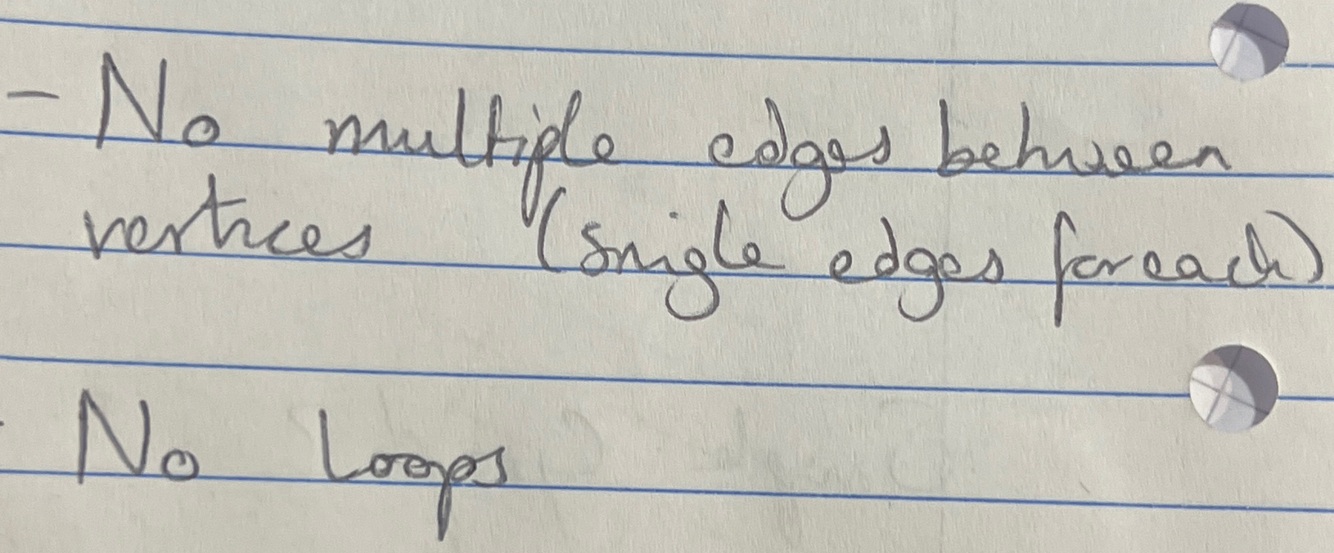 - No multiple edges between
vertices (single edges for each)
- No Loops